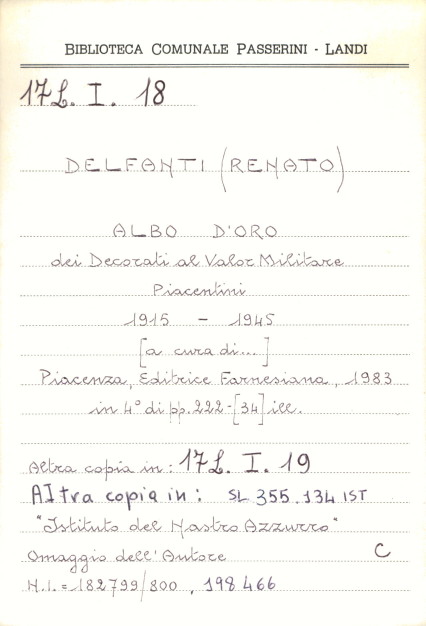 BIBLIOTECA COMUNALE PASSERINI - LANDI
17L. I. 18
DELFANTI (RENATO)
ALBO D'ORO
dei Decorati al Valor Militare
Piacentini
1915 - 1945
[a cura di...]
Piacenza, Editrice Farnesiana, 1983
in 4° di pp. 222-[34] ill.
Altra copia in: 17L. I. 19
Altra copia in: SL 355.134 IST
"Istituto del Nastro Azzurro"
Omaggio dell'Autore C
N.I. = 182799/800, 198466